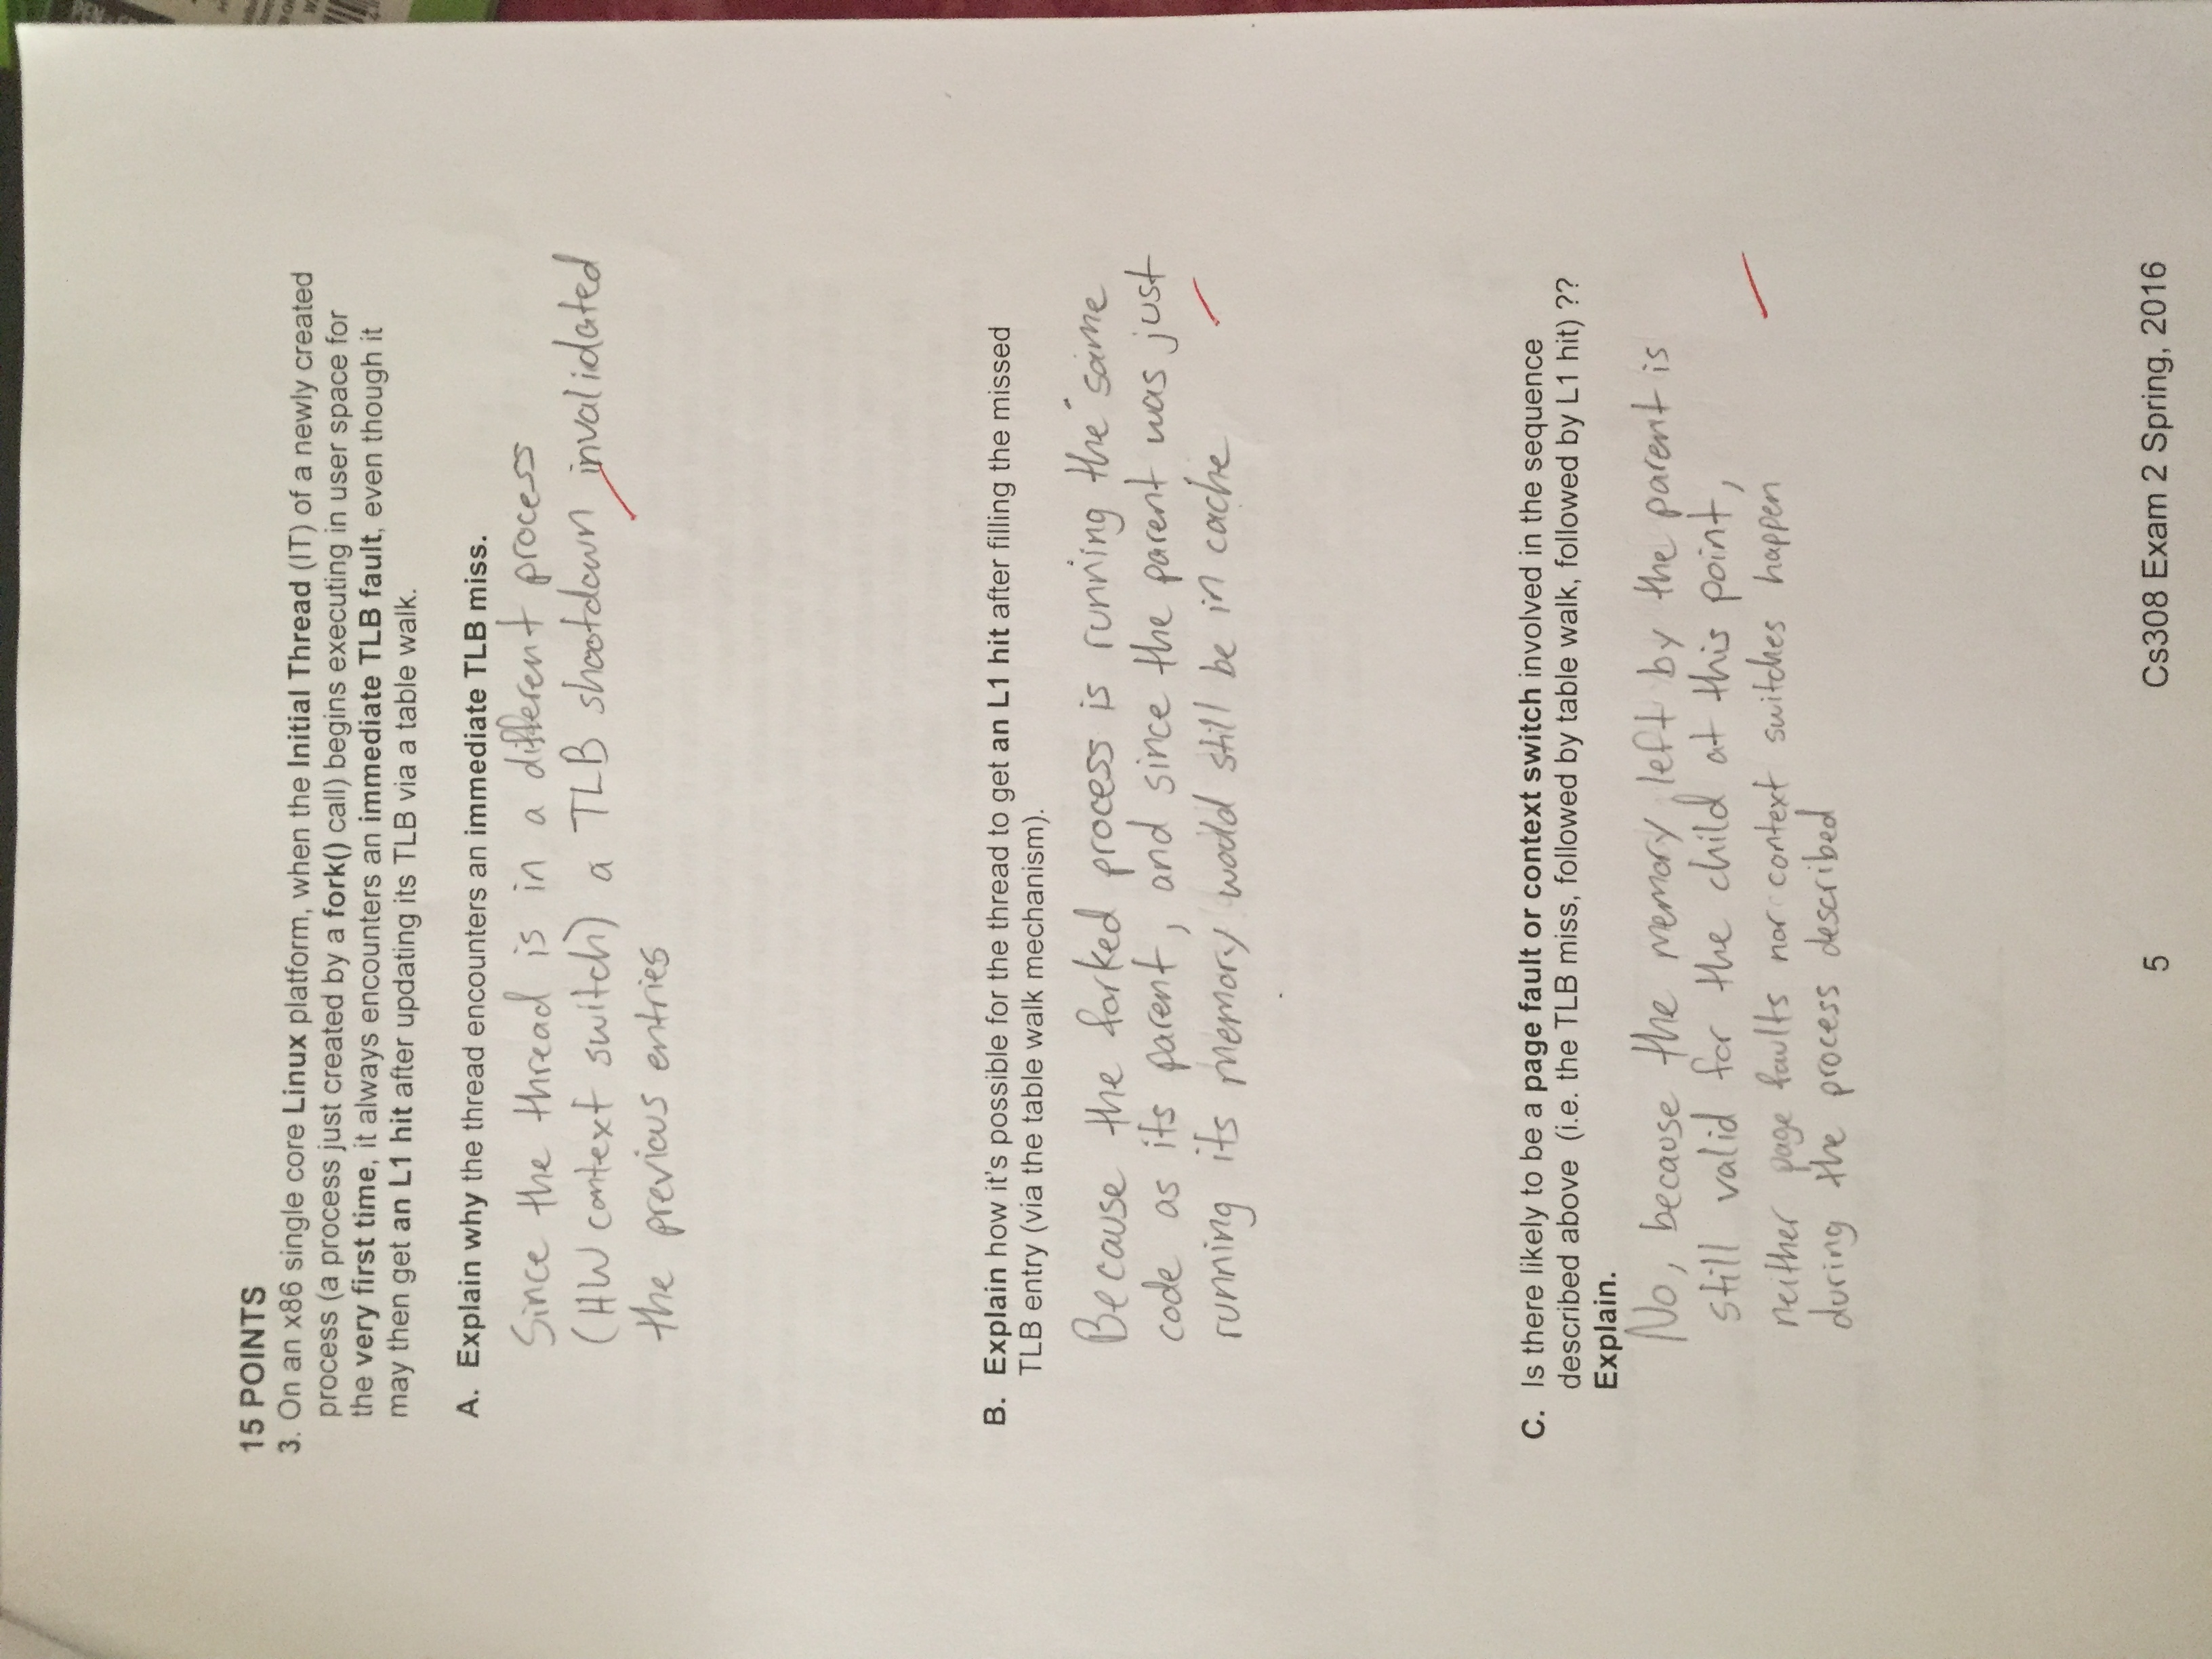 15 POINTS
3. On an x86 single core Linux platform, when the Initial Thread (IT) of a newly created
process (a process just created by a fork() call) begins executing in user space for
the very first time, it always encounters an immediate TLB fault, even though it
may then get an L1 hit after updating its TLB via a table walk.
A. Explain why the thread encounters an immediate TLB miss.
Since the thread is in a different process
(HW context switch) a TLB shootdown invalidated
the previous entries
B. Explain how it's possible for the thread to get an L1 hit after filling the missed
TLB entry (via the table walk mechanism).
Because the forked process is running the same
code as its parent, and since the parent was just
running its memory would still be in cache
C. Is there likely to be a page fault or context switch involved in the sequence
described above (i.e. the TLB miss, followed by table walk, followed by L1 hit) ??
Explain.
No, because the memory left by the parent is
still valid for the child at this point,
neither page faults nor context switches happen
during the process described
5 Cs308 Exam 2 Spring, 2016